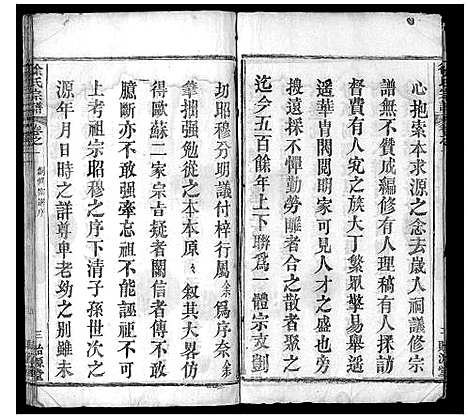 心抱索本求源之念去歲入祠議修宗
譜無不贊成編修有人理稿有人採訪
督費有人究之族大丁繁眾擎易舉昔
遥華胄閥閱明明家可見人才之盛也旁
搜遠採不憚勤勞離者合之散者聚之
迄今五百餘年上下聯為一體宗支劃
切昭穆分明議付梓行屬余為序奈余
筆拙強勉從之本本原々叙其大畧仿
得歐蘇二家宗吉疑者闕信者傳不敢
臆斷亦不敢強牽忘祖不能誣祖不可
考上祖宗昭穆之序下清子孫世次之
源年月日時之詳尊卑老幼之別雖未
徐氏宗譜
卷之
三
貽源堂